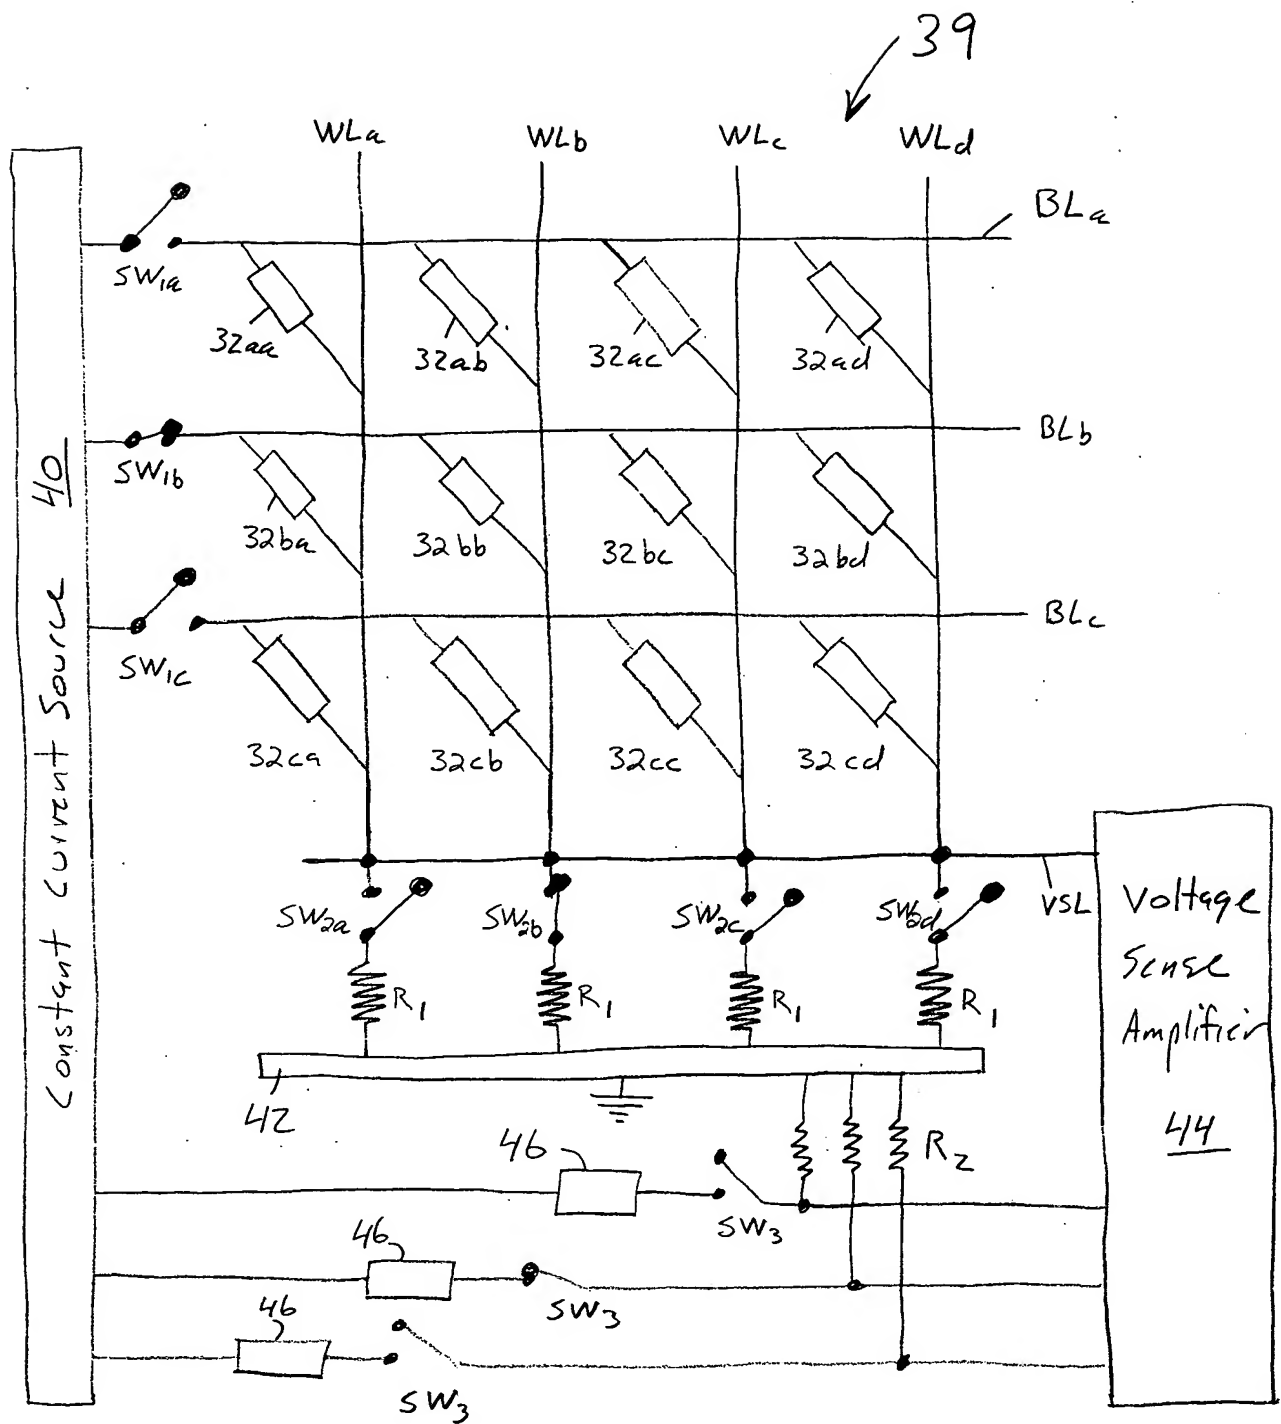 39
WLa
WLb
WLc
WLd
BLa
SW1a
32aa
32ab
32ac
32ad
BLb
SW1b
32ba
32bb
32bc
32bd
BLc
SW1c
32ca
32cb
32cc
32cd
Constant Current Source 40
SW2a
SW2b
SW2c
SW2d
VSL
R1
R1
R1
R1
Voltage
Sense
Amplifier
44
42
R2
46
SW3
46
SW3
46
SW3